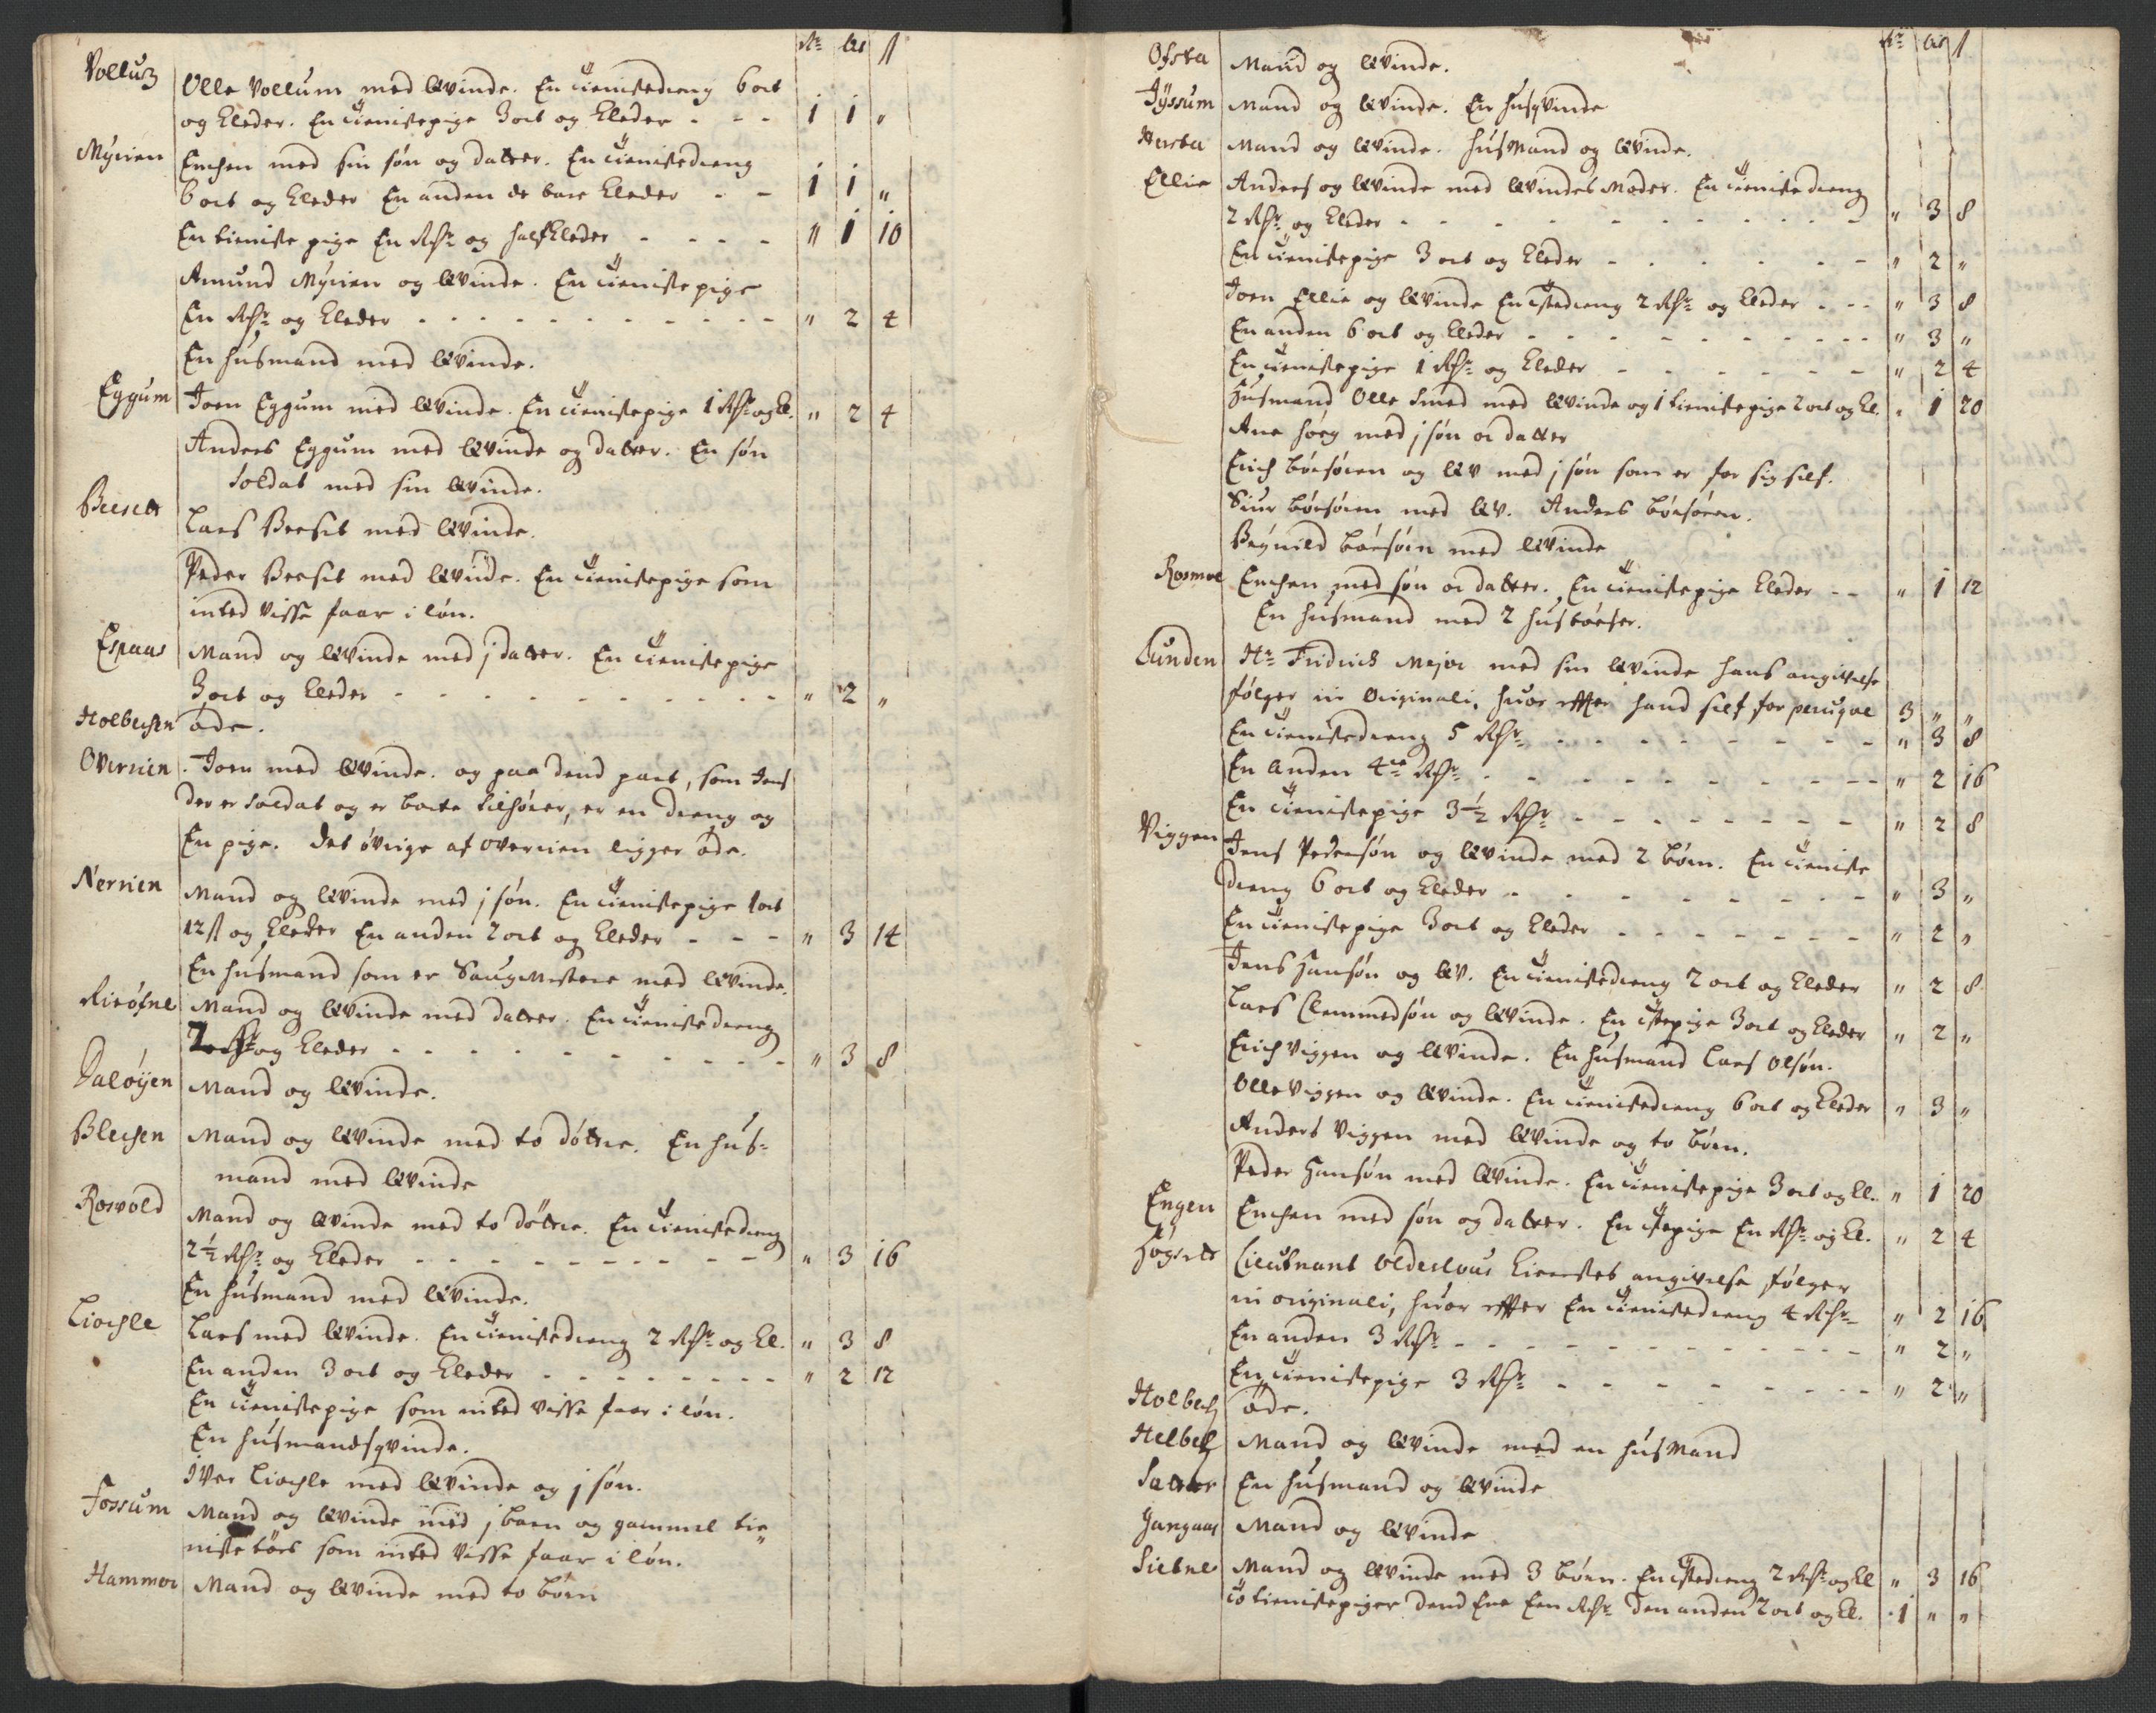 Rr ort ß
Vollum Olle Vollum med Qvinde. En tienistedreng 6 ort
og Kleder. En tienistepige 3 ort og Kleder - - - 1 1 "
Myrien Enchen med sin søn og datter. En tienistedreng
6 ort og Kleder En anden de bare Kleder - - 1 1 "
En tieniste pige En Rdr og half Kleder - - - - " 1 10
Amund Myrien og Qvinde. En tienistepige
En Rdr og Kleder - - - - - - - " 2 4
En husmand med Qvinde.
Eggum Joen Eggum med Qvinde. En tienistepige 1 Rdr og Kl. " 2 4
Anders Eggum med Qvinde og datter. En søn
soldat med sin Qvinde.
Lars Beesit med Qvinde.
Peder Beesit med Qvinde. En tienistepige som
inted visse faar i løn.
Espaas Mand og Qvinde med j datter. En tienistepige
3 ort og Kleder - - - - - - - " 2 "
Holbechen øde.
Overrien Joen med Qvinde. og paa dend part, som Jens
der er soldat og er borte tilhører, er en dreng og
En pige. Det øvrige af Overrien ligger øde.
Nerrien Mand og Qvinde med j søn. En tienistepige 1 ort
12 ß og Kleder En anden 2 ort og Kleder - - - " 3 14
En husmand som er Saugmester med Qvinde.
Mand og Qvinde med datter. En tienistedreng
og Kleder - - - - - - - " 3 8
Daløyen Mand og Qvinde.
Blechen Mand og Qvinde med to døttre. En hus-
mand med Qvinde
Rosvold Mand og Qvinde med to døttre. En tienistedreng
2½ Rdr og Kleder - - - - - - - " 3 16
En husmand med Qvinde.
Liochle Lars med Qvinde. En tienistedreng 2 Rdr og Kl. " 3 8
En anden 3 ort og Kleder - - - - - - " 2 12
En tienistepige som inted visse faar i løn.
En husmandsqvinde.
Iver Liochle med Qvinde og j søn.
Fossum Mand og Qvinde med j barn og gammel tie
niste tøes som inted visse faar i løn.
Hammer Mand og Qvinde med to børn
Rr ort ß
Ofsta Mand og Qvinde.
Tyssum Mand og Qvinde. En husqvinde
Hersta Mand og Qvinde. Husmand og Qvinde.
Ellie Anders og Qvinde med Qvindes Moder. En tienistedreng
2 Rdr og Kleder - - - - - - - " 3 8
En tienistepige 3 ort og Kleder - - - - - " 2 "
Joen Ellie og Qvinde En tdreng 2 Rdr og Kleder - - - " 3 8
En anden 6 ort og Kleder - - - - - - " 3 "
En tienistepige 1 Rdr og Kleder - - - - - " 2 4
Husmand Olle Smed med Qvinde og 1 tienistepige 2 ort og Kl. " 1 20
Ane med j søn oc datter
Erich Børsøren og Qv med j søn som er for sig self.
Siur Børsøren med Qv. Anders Børsøren.
Børsøren med Qvinde
Rosmoe Enchen med søn oc datter. En tienistepige Kleder - - " 1 12
En husmand med 2
Lunden Hr Fridrich Mejer med sin Qvinde hans angivelse
følger in Originali, huor effter hand self for 3 " "
En tienistedreng 5 Rdr - - - - - - " 3 8
En anden 4 Rdr - - - - - - " 2 16
En tienistepige 3½ Rdr - - - - - - " 2 8
Viggen Jens Pedersøn og Qvinde med 2 børn. En tieniste
dreng 6 ort og Kleder - - - - - - " 3 "
En tienistepige 3 ort og Kleder - - - - - " 2 "
Jens Hansøn og Qv. En tienistedreng 2 ort og Kleder " 2 8
Lars Clemmedsøn og Qvinde. En tpige 3 ort og Kleder " 2 "
Erich Viggen og Qvinde. En husmand Lars Olsøn.
Olle Viggen og Qvinde. En tienistedreng 6 ort og Kleder " 3 "
Anders Viggen med Qvinde og to børn.
Peder Hansøn med Qvinde. En tienistepige 3 ort og Kl. " 1 20
Engen Enchen med søn og datter. En tpige En Rdr og Kl. " 2 4
Lieutnant angivelse følger
in originali, huor effter En tienistedreng 4 Rdr " 2 16
En anden 3 Rdr - - - - - - " 2 "
En tienistepige 3 Rdr - - - - - - " 2 "
Holbech øde.
Helbech Mand og Qvinde med en husmand
Sætter En husmand og Qvinde
Mand og Qvinde
Mand og Qvinde med 3 børn. En tdreng 2 Rdr og Kl " 3 16
to tienistepiger dend Ene Een Rdr den anden 2 ort og Kl. 1 " "